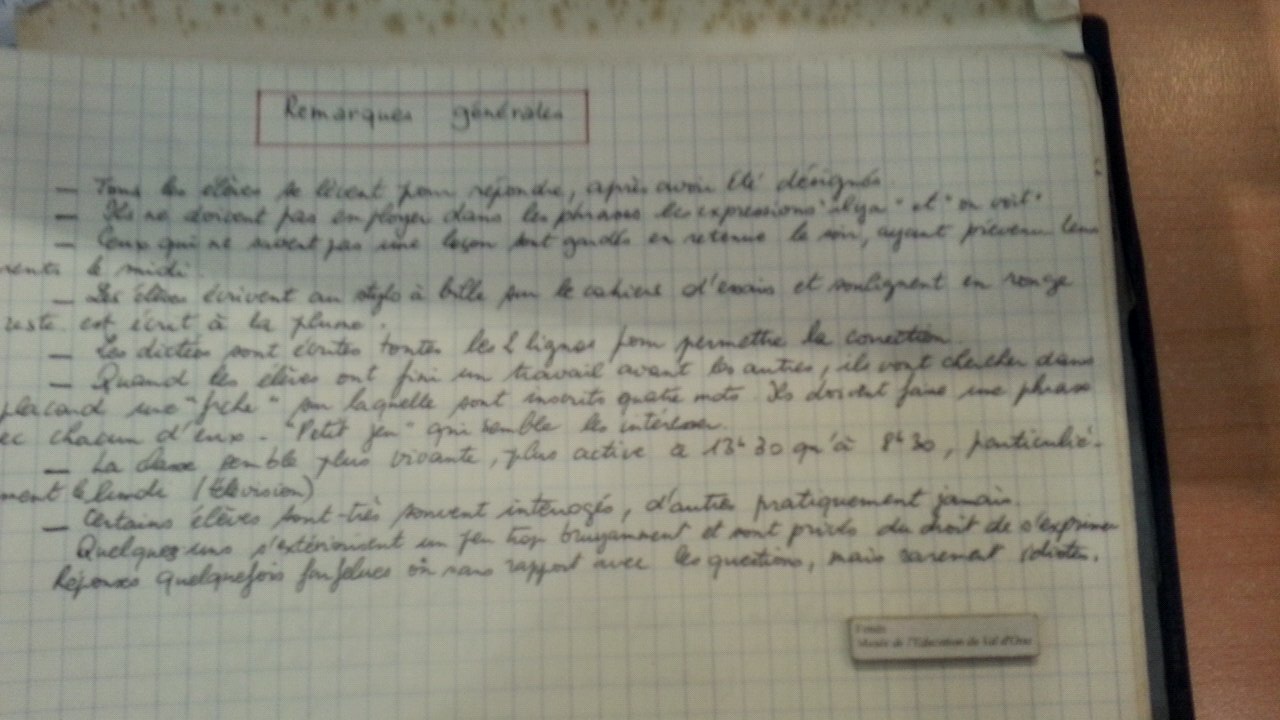 Remarques générales
— Tous les élèves se lèvent pour répondre, après avoir été désignés.
— Ils ne doivent pas employer dans les phrases les expressions "il y a" et "on voit".
— Ceux qui ne savent pas une leçon sont gardés en retenue le soir, ayant prévenu leurs
rents le midi.
— Les élèves écrivent au stylo à bille sur le cahiers d'essais et soulignent en rouge
reste est écrit à la plume.
— Les dictées sont écrites toutes les 2 lignes pour permettre la correction.
— Quand les élèves ont fini un travail avant les autres, ils vont chercher dans
placard une "fiche" sur laquelle sont inscrits quatre mots. Ils doivent faire une phrase
ec chacun d'eux. "Petit jeu" qui semble les intéresser.
— La classe semble plus vivante, plus active à 13h30 qu'à 8h30, particuliè-
ment le lundi (télévision)
— Certains élèves sont très souvent interrogés, d'autres pratiquement jamais.
Quelques-uns s'extériorisent un peu trop bruyamment et sont privés du droit de s'exprimer
Réponses quelquefois farfelues ou sans rapport avec les questions, mais rarement idiotes.
Fonds
Musée de l'Education du Val d'Oise